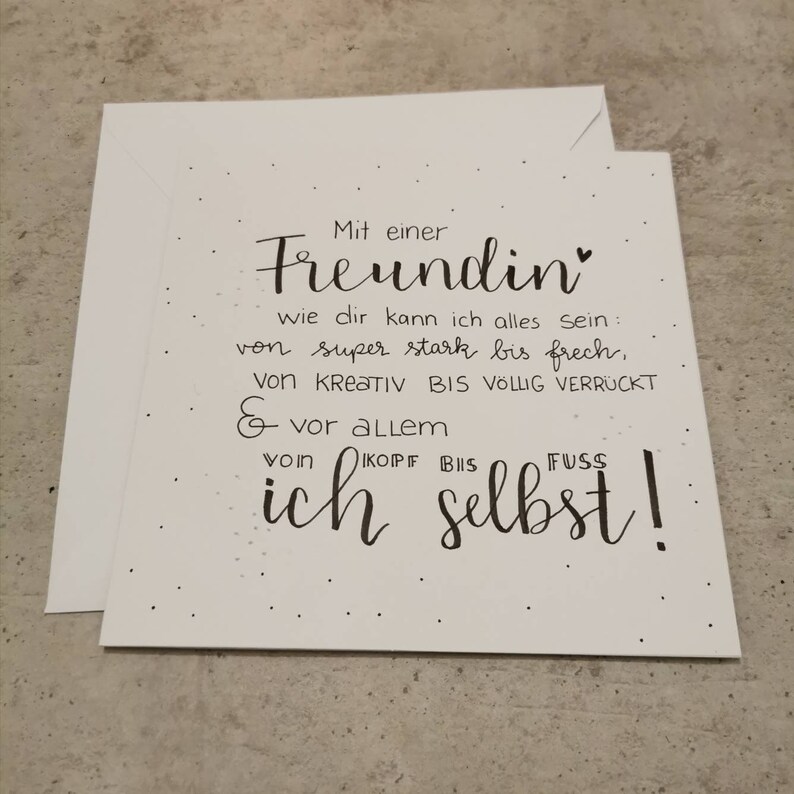 Mit einer
Freundin
wie dir kann ich alles sein:
von super stark bis frech,
von KREATIV BIS VÖLLIG VERRÜCKT
& vor allem
von KOPF BIS FUSS
ich selbst!